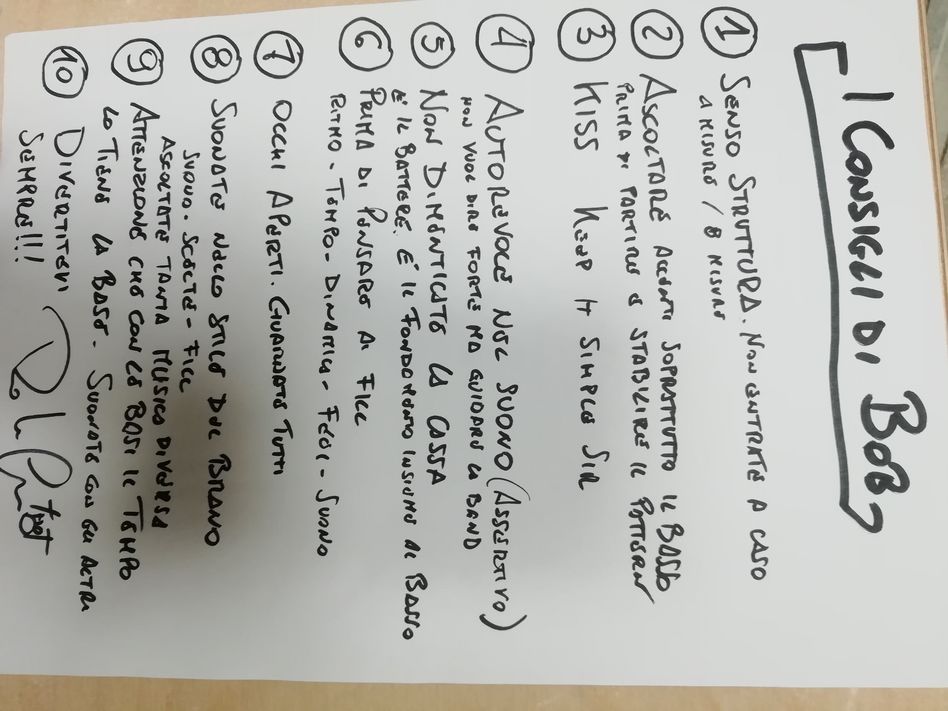 I CONSIGLI DI BOB
1 SENSO STRUTTURA. NON ENTRATE A CASO
4 MISURE / 8 MISURE
2 ASCOLTARE ACCENTI SOPRATTUTTO IL BASSO
PRIMA DI PARTIRE E STABILIRE IL PATTERN
3 KISS KEEP IT SIMPLE SIR
4 AUTOREVOLE NEL SUONO (ASSERTIVO)
NON VUOL DIRE FORTE MA GUIDARE LA BAND
5 NON DIMENTICATE LA CASSA
È IL BATTERE. È IL FONDAMENTO INSIEME AL BASSO
6 PRIMA DI PENSARE AI FILL
RITMO - TEMPO - DINAMICA - FEEL - SUONO
7 OCCHI APERTI. GUARDATE TUTTI
8 SUONATE NELLO STILE DEL BRANO
SUONO - SCELTE - FILL
ASCOLTATE TANTA MUSICA DIVERSA
9 ATTENZIONE CHE CON LE BASI IL TEMPO
LO TIENE LA BASE. SUONATE CON GLI ALTRI
10 DIVERTITEVI
SEMPRE!!!